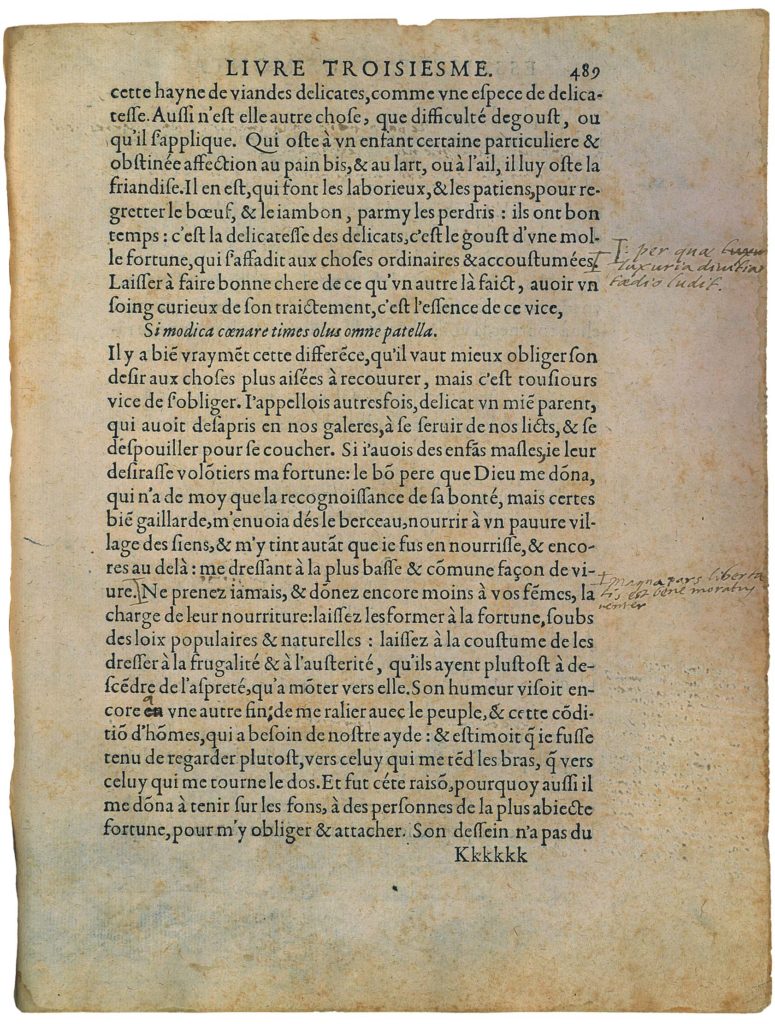 LIVRE TROISIESME. 489
cette hayne de viandes delicates, comme vne eſpece de delica-
teſſe. Auſſi n'eſt elle autre choſe, que difficulté degouſt, ou
qu'il ſ'applique. Qui oſte à vn enfant certaine particuliere &
obſtinée affection au pain bis, & au lart, ou à l'ail, il luy oſte la
friandiſe. Il en eſt, qui font les laborieux, & les patiens, pour re-
gretter le bœuf, & le iambon, parmy les perdris : ils ont bon
temps : c'eſt la delicateſſe des delicats, c'eſt le gouſt d'vne mol-
le fortune, qui ſ'affadit aux choſes ordinaires & accouſtumées
per quæ luxuria diuitiarum
tædio ludit.
Laiſſer à faire bonne chere de ce qu'vn autre là faict, auoir vn
ſoing curieux de ſon traictement, c'eſt l'eſſence de ce vice,
Si modica cœnare times olus omne patella.
Il y a biẽ vraymẽt cette differẽce, qu'il vaut mieux obliger ſon
deſir aux choſes plus aiſées à recouurer, mais c'eſt touſiours
vice de ſ'obliger. I'appellois autresfois, delicat vn miẽ parent,
qui auoit deſapris en nos galeres, à ſe ſeruir de nos licts, & ſe
deſpouiller pour ſe coucher. Si i'auois des enfãs maſles, ie leur
deſiraſſe volõtiers ma fortune: le bõ pere que Dieu me dõna,
qui n'a de moy que la recognoiſſance de ſa bonté, mais certes
biẽ gaillarde, m'enuoia dés le berceau, nourrir à vn pauure vil-
lage des ſiens, & m'y tint autãt que ie fus en nourriſſe, & enco-
res au delà : me dreſſant à la plus baſſe & cõmune façon de vi-
ure. Ne prenez iamais, & dõnez encore moins à vos fẽmes, la
magna pars liberta
tis est bene moratus
venter
charge de leur nourriture: laiſſez les former à la fortune, ſoubs
des loix populaires & naturelles : laiſſez à la couſtume de les
dreſſer à la frugalité & à l'auſterité, qu'ils ayent pluſtoſt à de-
ſcẽdre de l'aſpreté, qu'a mõter vers elle. Son humeur viſoit en-
core a vne autre fin, de me ralier auec le peuple, & cette cõdi-
tiõ d'hõmes, qui a beſoin de noſtre ayde : & eſtimoit q̃ ie fuſſe
tenu de regarder plutoſt, vers celuy qui me tẽd les bras, q̃ vers
celuy qui me tourne le dos. Et fut céte raiſõ, pourquoy auſſi il
me dõna à tenir ſur les fons, à des perſonnes de la plus abiecte
fortune, pour m'y obliger & attacher. Son deſſein n'a pas du
Kkkkkk